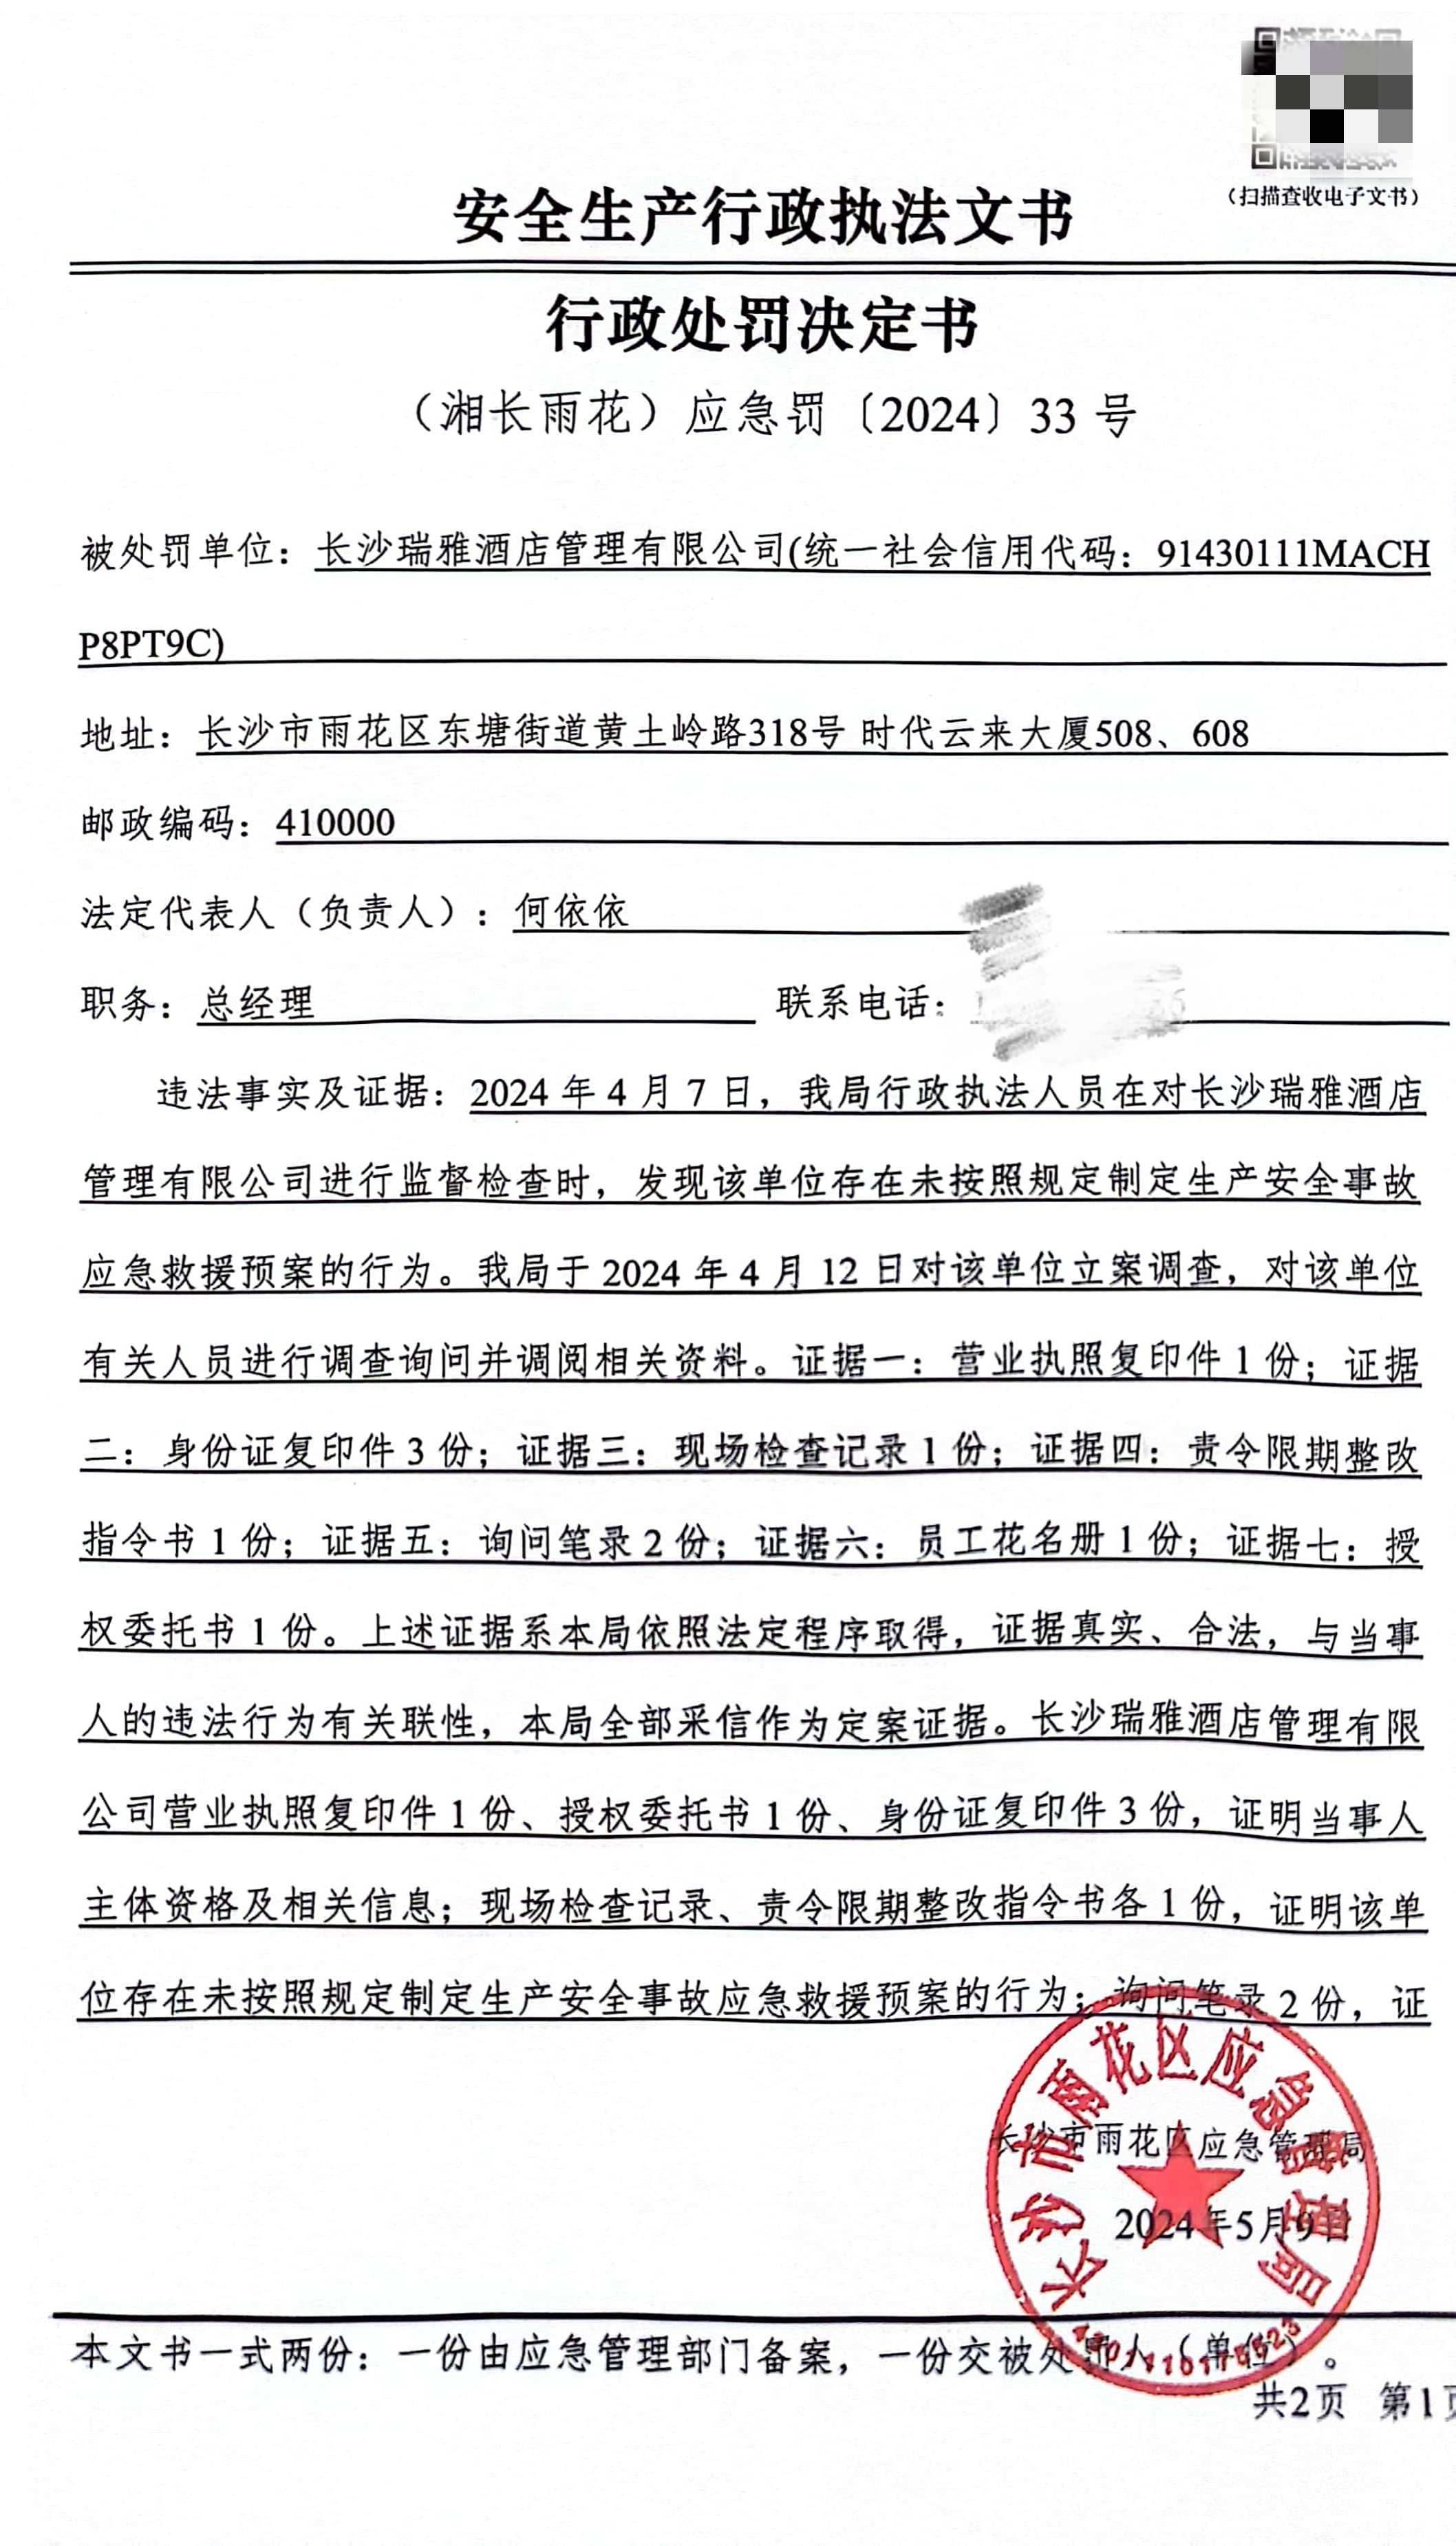 （扫描查收电子文书）
安全生产行政执法文书
行政处罚决定书
（湘长雨花）应急罚〔2024〕33 号
被处罚单位：长沙瑞雅酒店管理有限公司(统一社会信用代码：91430111MACH
P8PT9C)
地址：长沙市雨花区东塘街道黄土岭路318号 时代云来大厦508、608
邮政编码：410000
法定代表人（负责人）：何依依
职务：总经理 联系电话：
违法事实及证据：2024 年 4 月 7 日，我局行政执法人员在对长沙瑞雅酒店
管理有限公司进行监督检查时，发现该单位存在未按照规定制定生产安全事故
应急救援预案的行为。我局于 2024 年 4 月 12 日对该单位立案调查，对该单位
有关人员进行调查询问并调阅相关资料。证据一：营业执照复印件 1 份；证据
二：身份证复印件 3 份；证据三：现场检查记录 1 份；证据四：责令限期整改
指令书 1 份；证据五：询问笔录 2 份；证据六：员工花名册 1 份；证据七：授
权委托书 1 份。上述证据系本局依照法定程序取得，证据真实、合法，与当事
人的违法行为有关联性，本局全部采信作为定案证据。长沙瑞雅酒店管理有限
公司营业执照复印件 1 份、授权委托书 1 份、身份证复印件 3 份，证明当事人
主体资格及相关信息；现场检查记录、责令限期整改指令书各 1 份，证明该单
位存在未按照规定制定生产安全事故应急救援预案的行为；询问笔录 2 份，证
长沙市雨花区应急管理局
长沙市雨花区应急管理局
2024年5月9日
本文书一式两份：一份由应急管理部门备案，一份交被处罚人（单位）。
共2页 第1页